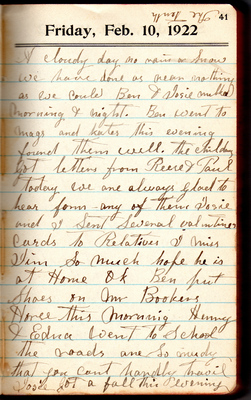 The Tenth
41
Friday, Feb. 10, 1922
A cloudy day no rain or snow
we have done as mean nothing
as we could Ben & Josie milked
morning & night. Ben went to
mags and kates this evening
found them well. the children
got letters from Reese & Paul
today we are always glad to
hear form any of them Josie
and I Sent Several valintines
cards to Relatives I miss
Jim So much hope he is
at Home Ok Ben put
Shoes on Mr Bookers
Horse this Morning Henry
& Edna Went to School
the roads are So mudy
that you cant handly travil
Josie got a fall this evening